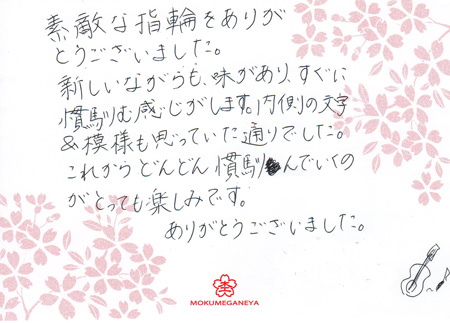 素敵な指輪をありが
とうございました。
新しいながらも、味があり、すぐに
慣馴む感じがします。内側の文字
&模様も思っていた通りでした。
これからどんどん慣馴んでいくの
がとっても楽しみです。
ありがとうございました。
MOKUMEGANEYA